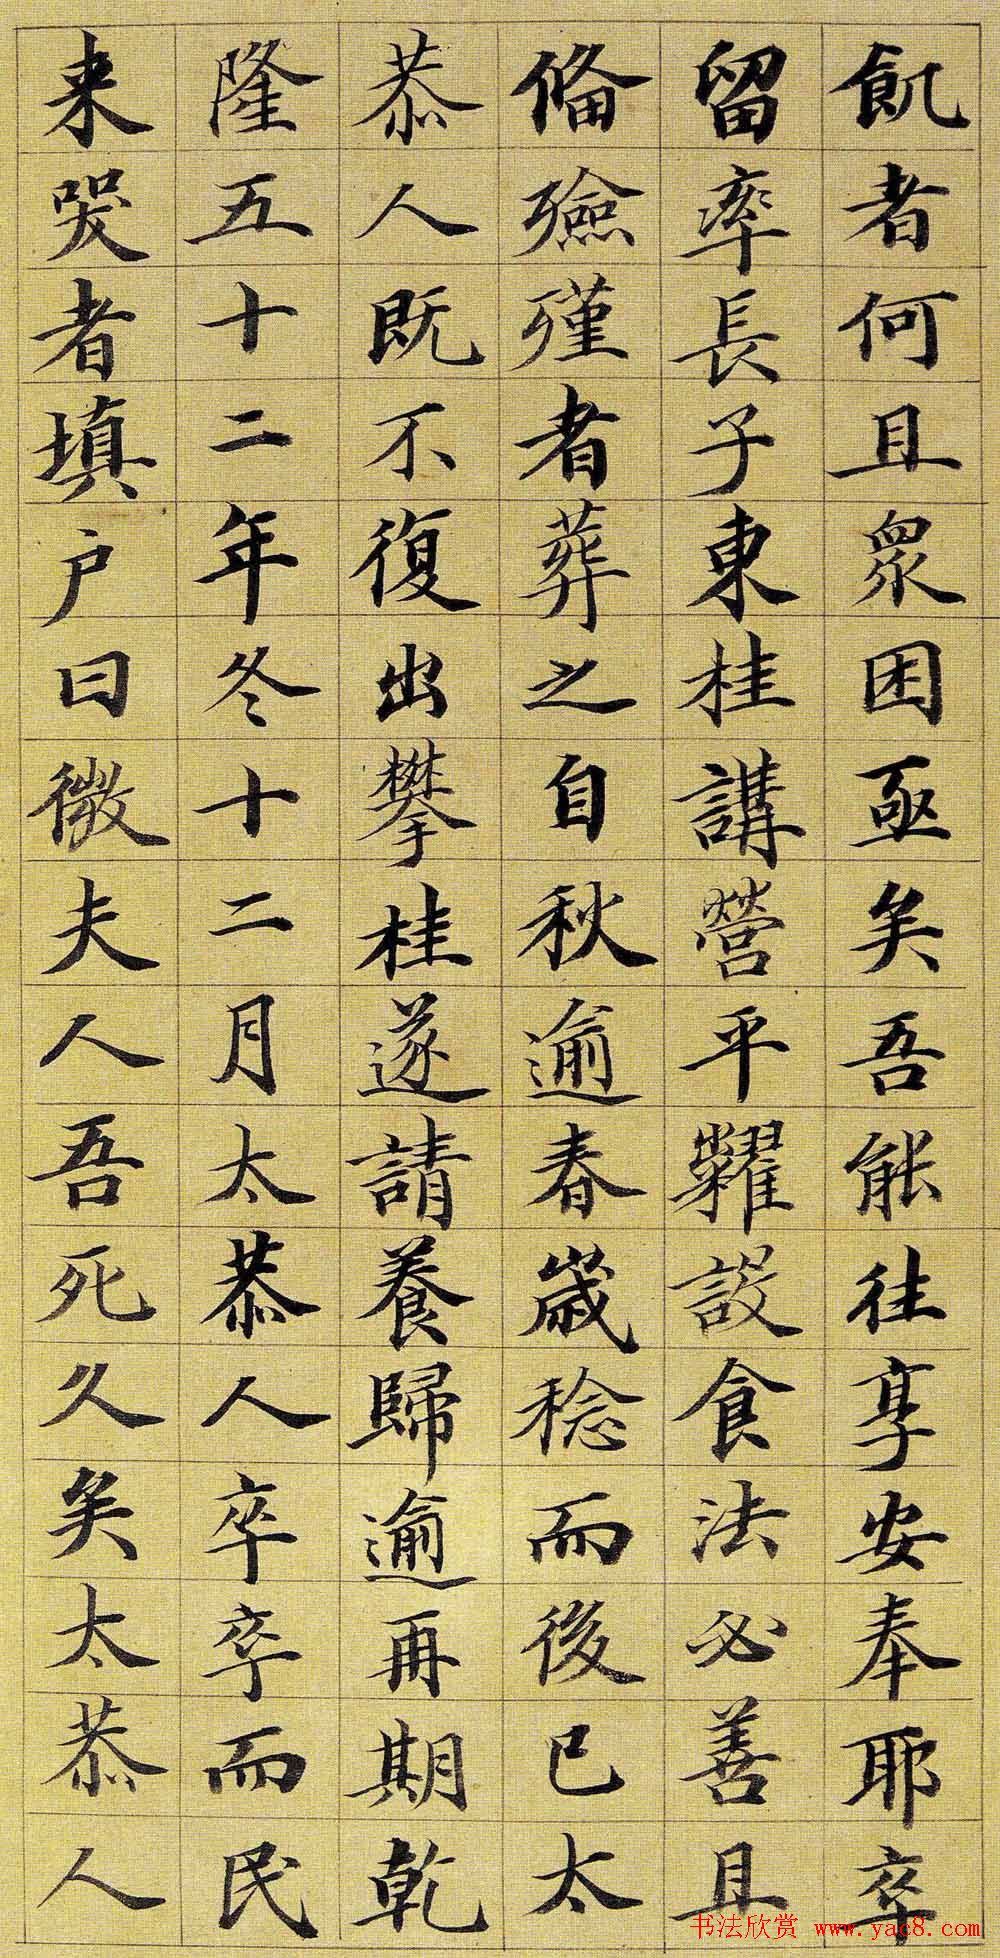 飢者何且眾困亟矣吾能往享安奉耶卒
留率長子東桂講營平糶設食法必善且
偹殮殣者葬之自秋逾春歲稔而後已太
恭人既不復出攀桂遂請養歸逾再期乾
隆五十二年冬十二月太恭人卒卒而民
来哭者填户曰微夫人吾死久矣太恭人
书法欣赏 www.yac8.com